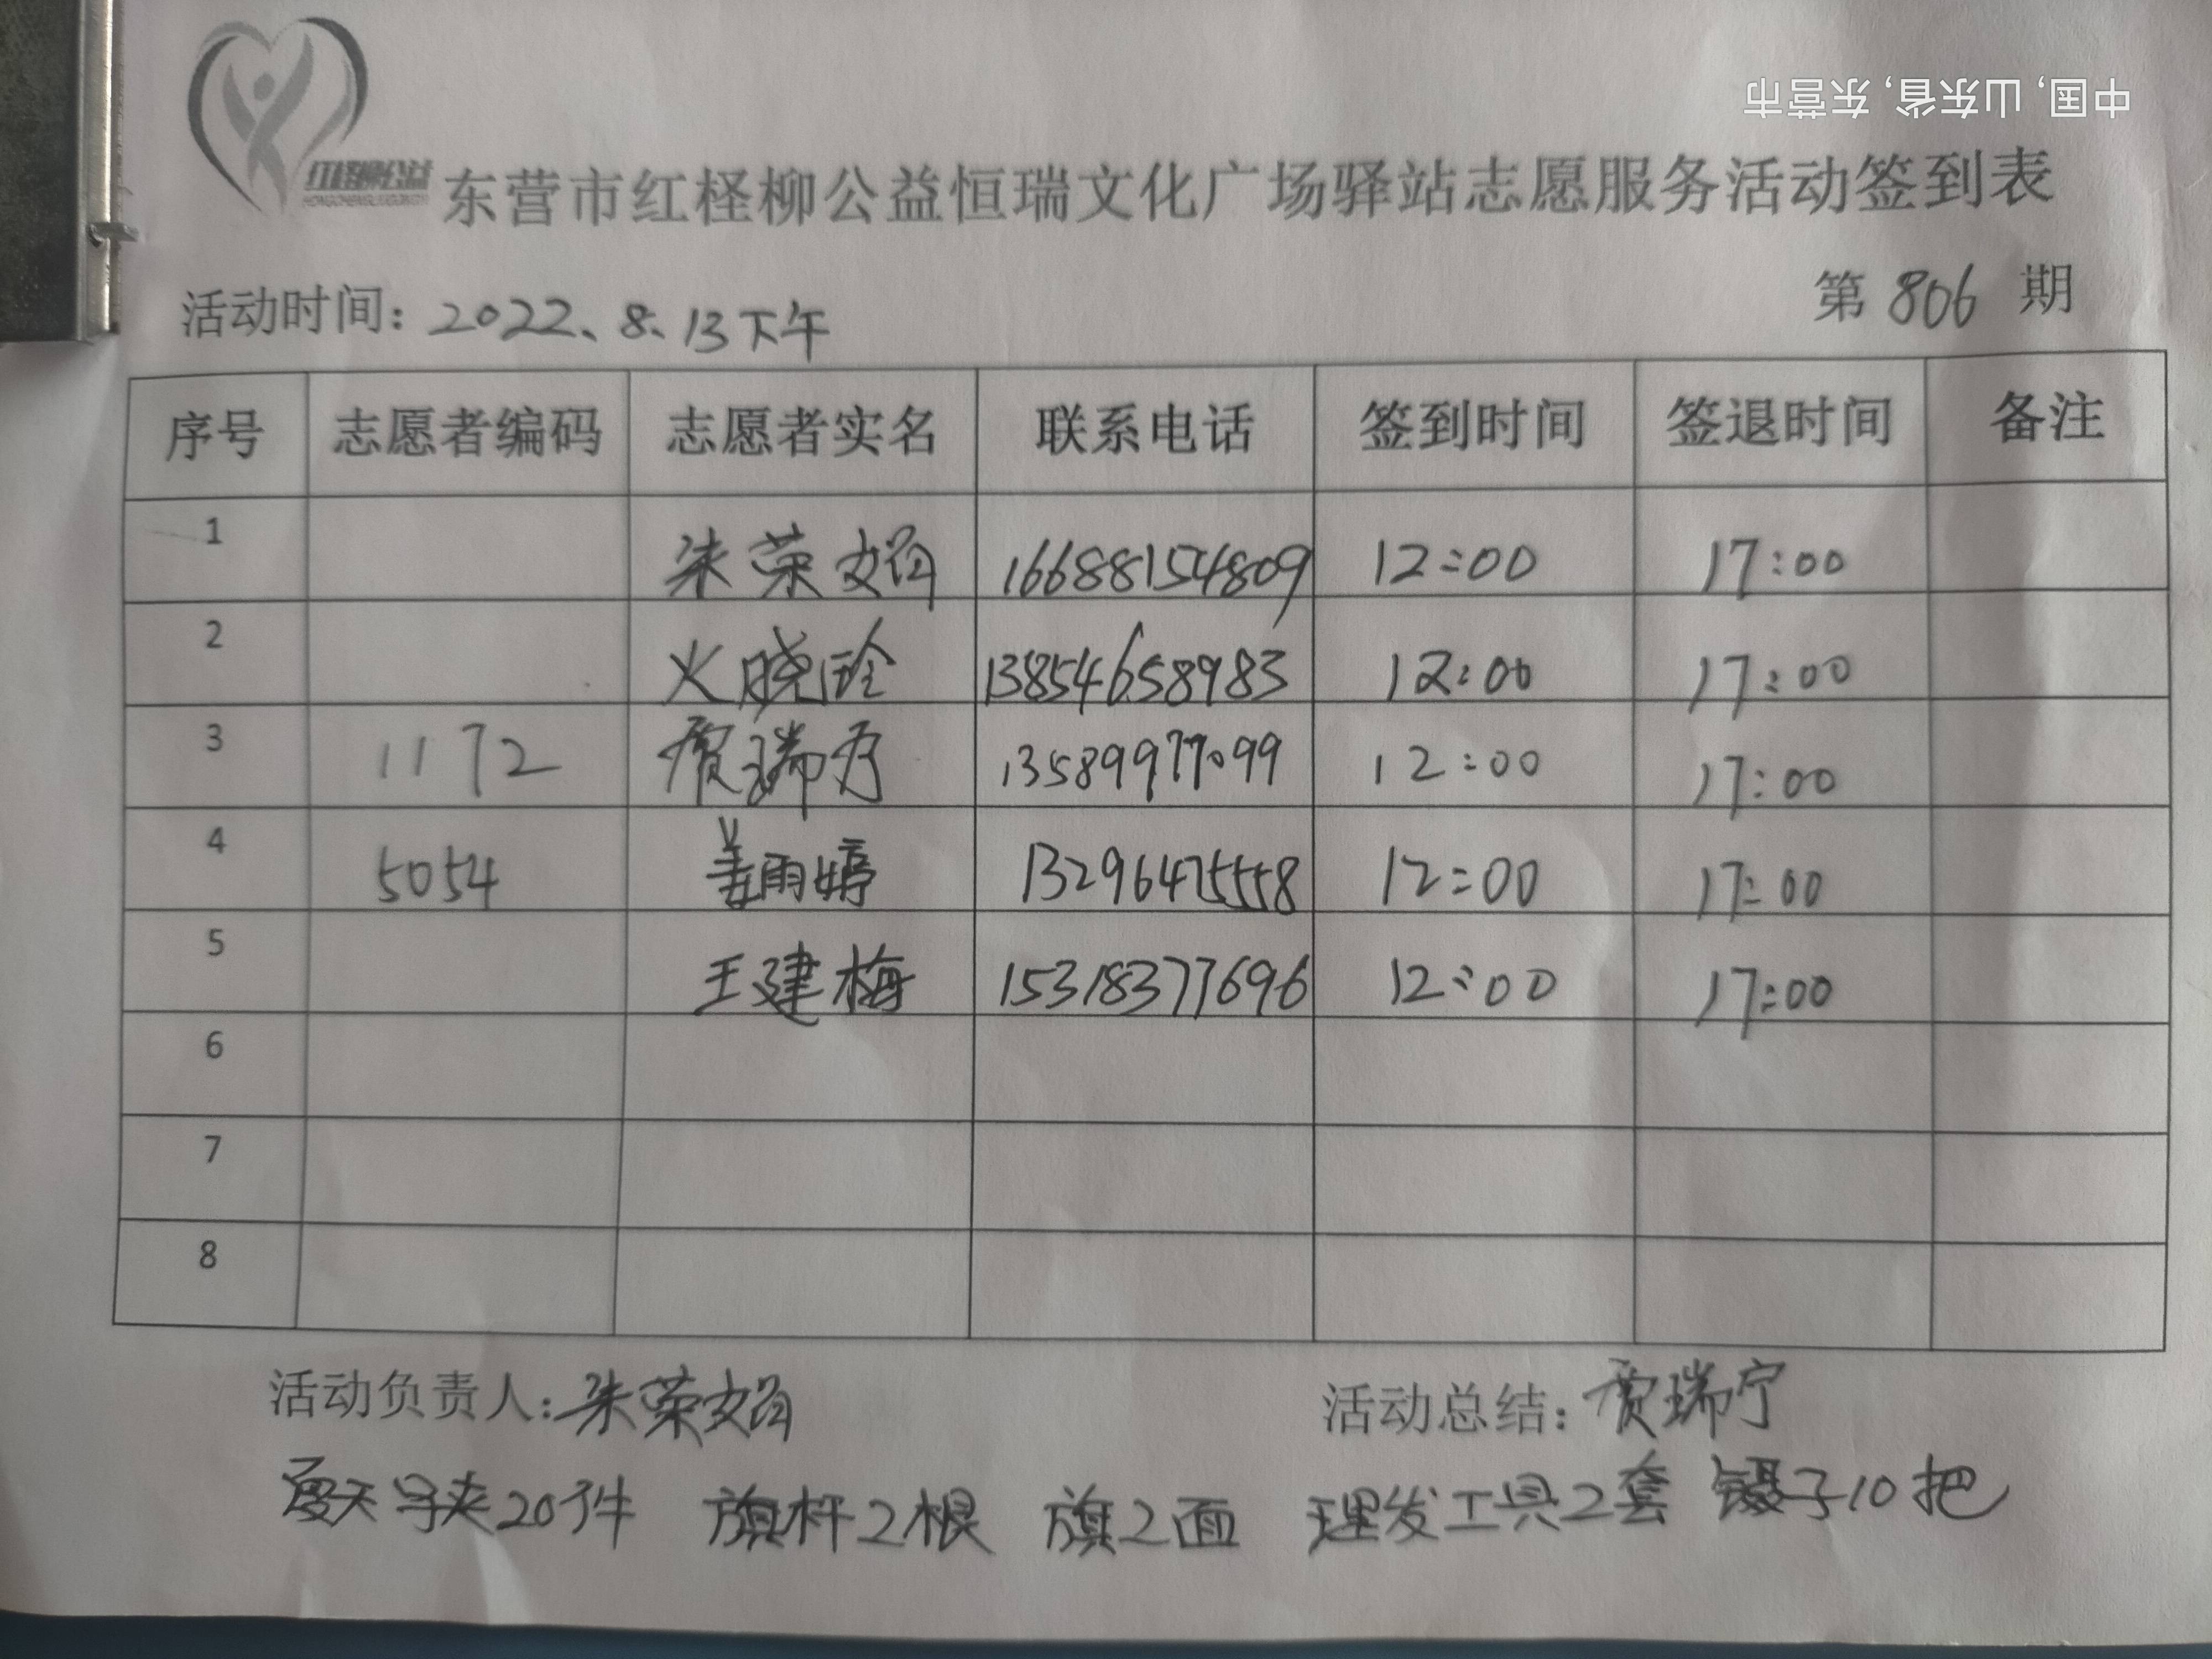 中国, 山东省, 东营市
红柽柳公益
东营市红柽柳公益恒瑞文化广场驿站志愿服务活动签到表
活动时间: 2022、8、13下午 第 806 期
序号 志愿者编码 志愿者实名 联系电话 签到时间 签退时间 备注
1 朱荣娟 16688154809 12:00 17:00
2 火晓玲 13854658983 12:00 17:00
3 1172 贾瑞宁 13589977099 12:00 17:00
4 5054 姜雨婷 13296475558 12:00 17:00
5 王建梅 15318377696 12:00 17:00
6
7
8
活动负责人: 朱荣娟 活动总结: 贾瑞宁
夏天马夹20件 旗杆2根 旗2面 理发工具2套 镊子10把